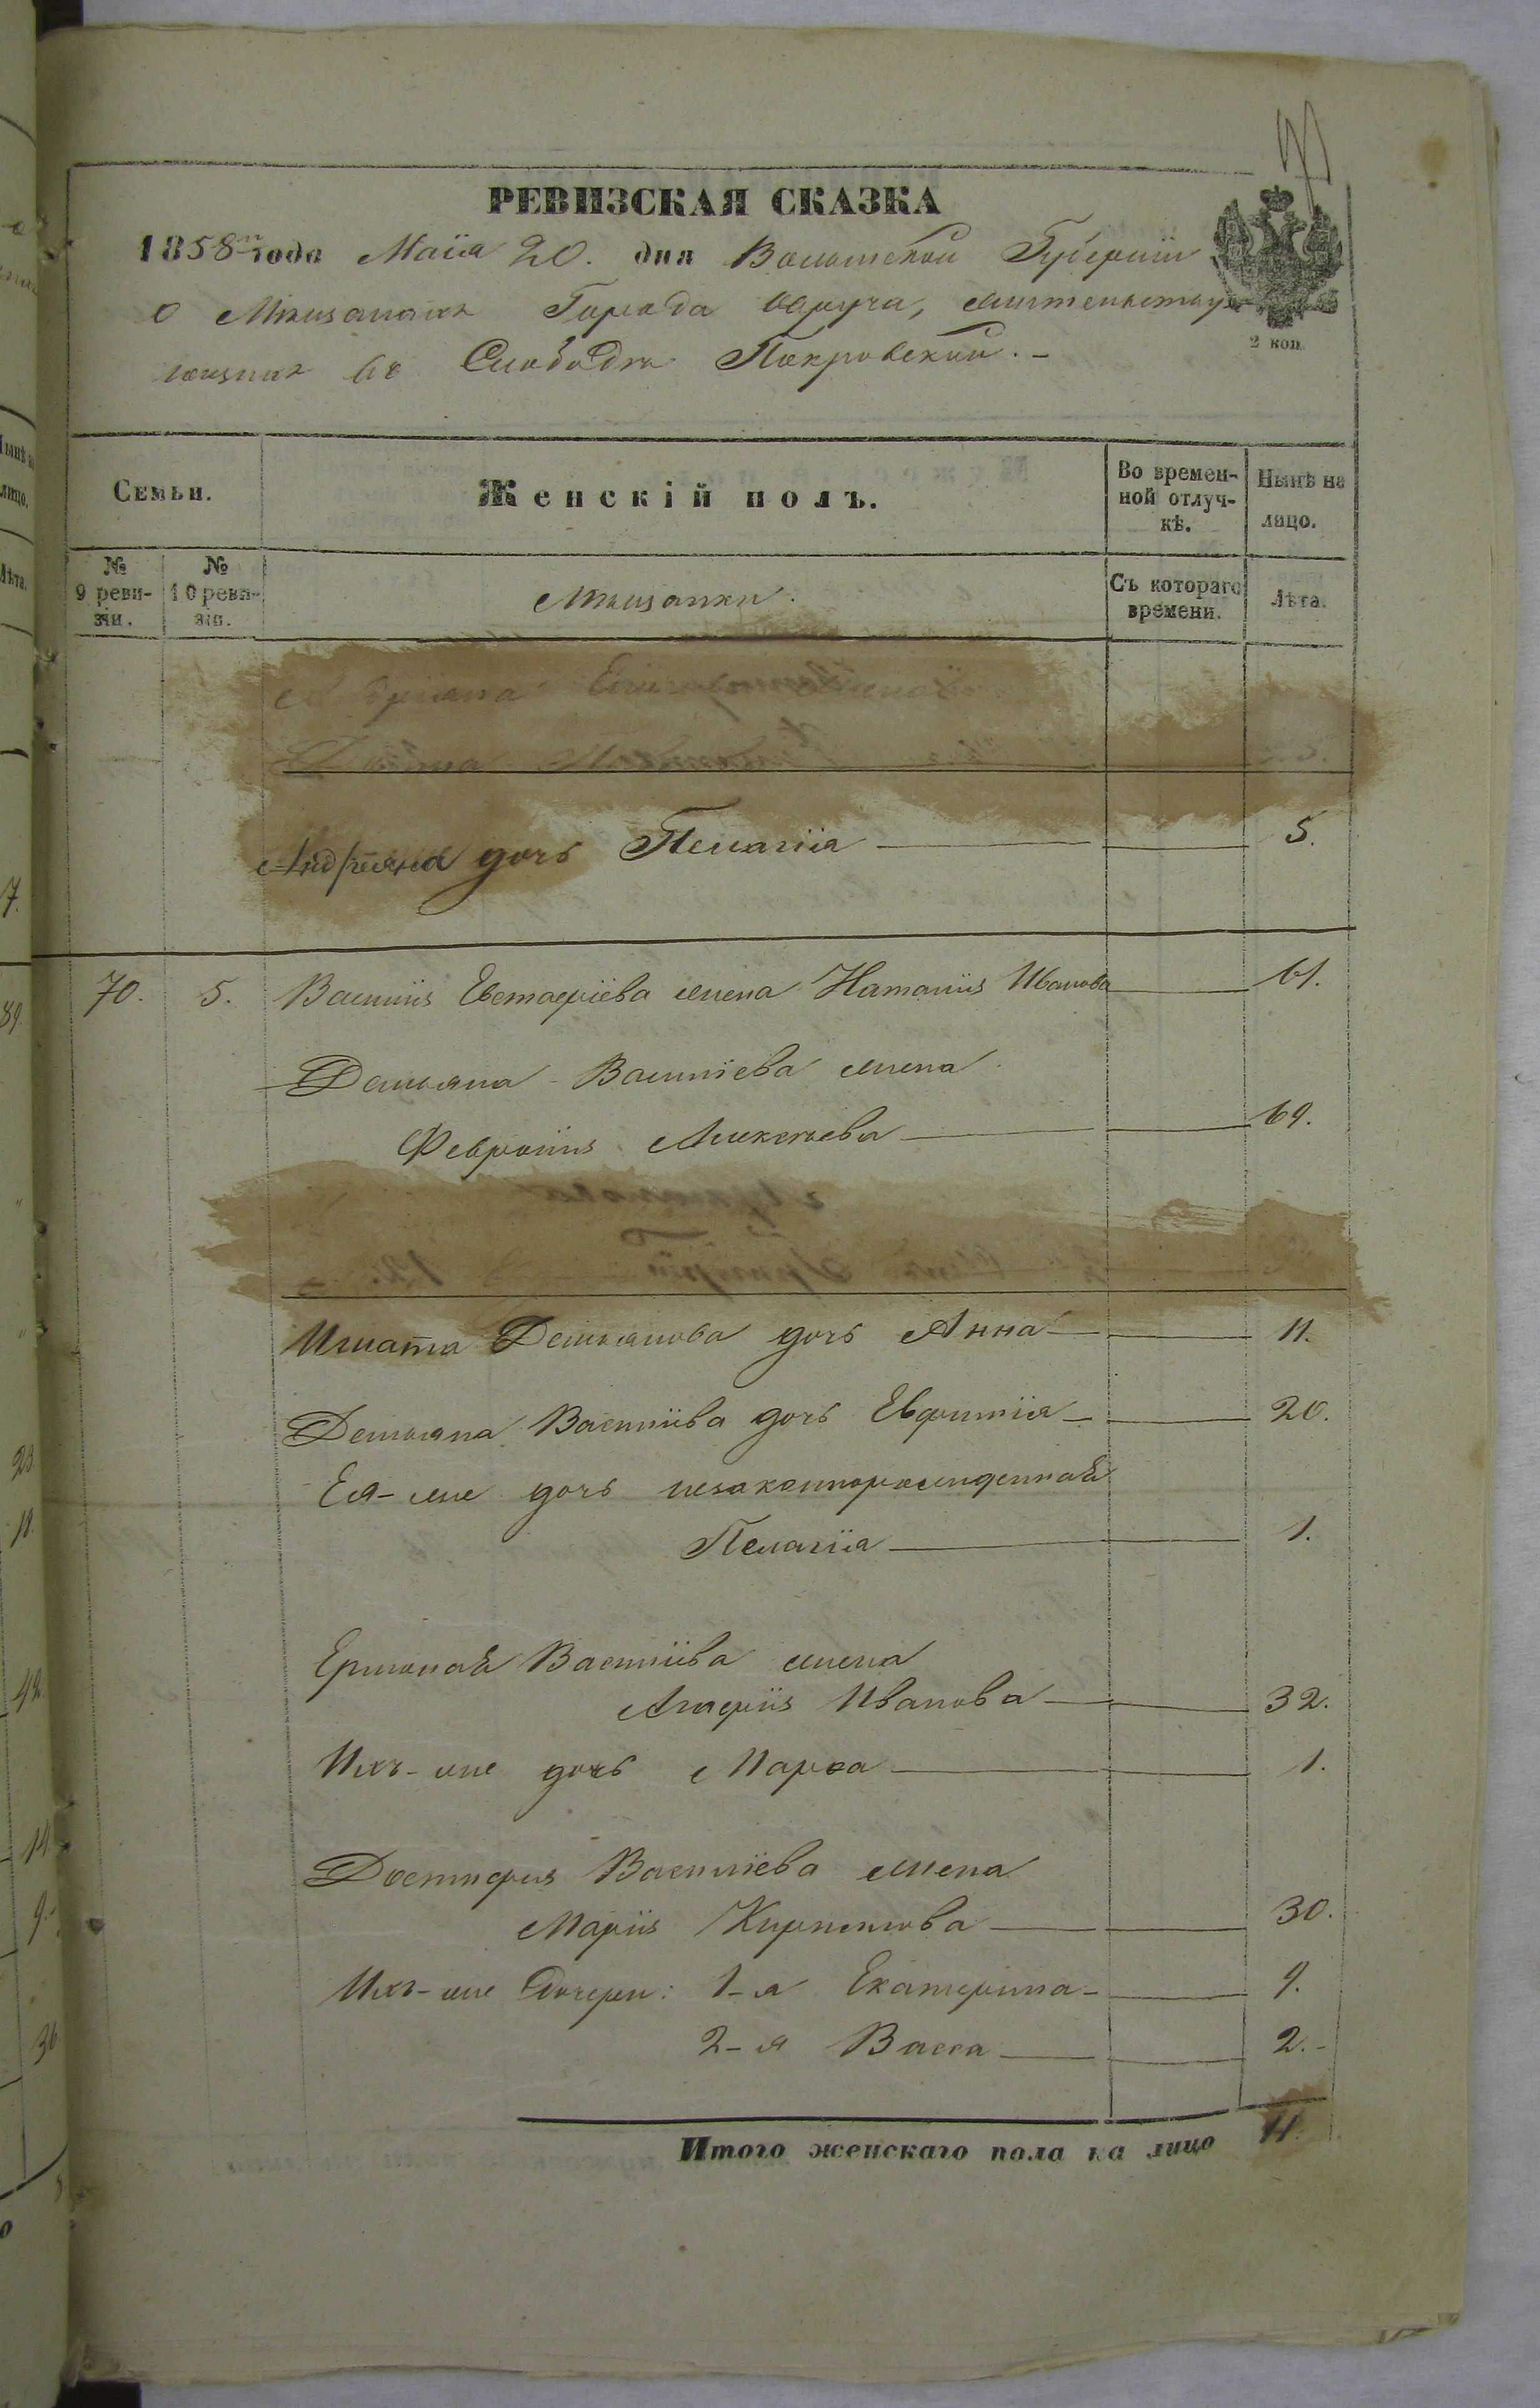 РЕВИЗСКАЯ СКАЗКА
1858го года Маіа 20. дня Волынской Губерніи
о Мѣщанахъ Города Овруча, жительствую-
2 коп.
ющихъ въ Слободѣ Покровской. -
Семьи.
Женскій полъ.
Во времен-
ной отлуч-
кѣ.
Нынѣ на
лицо.
№
9 реви-
зіи.
№
10 реви-
зіи.
Мѣщанки.
Съ котораго
времени.
Лѣта.
Андріяна дочь Пелагія 5.
70. 5. Василія Евстафіева жена Наталія Иванова 61.
Демьяна Василіева жена
Февронія Алексѣева 69.
Игната Демьянова дочь Анна 11.
Демьяна Василіева дочь Евфимія 20.
Ея-же дочь незаконнорожденная
Пелагія 1.
Ермолая Василіева жена
Агафія Иванова 32.
Ихъ-же дочь Марѳа 1.
Василіева жена
Марія Кирилова 30.
Ихъ-же Дочери: 1-я Екатерина 9.
2-я Васса 2.-
Итого женскаго пола на лицо 11.